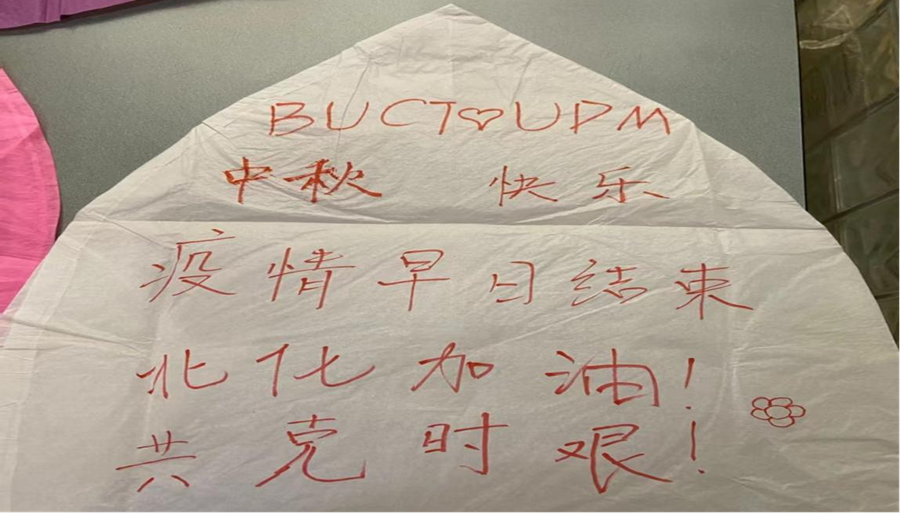 BUCT♡UDM
中秋 快乐
疫情早日结束
北化加油!
共克时艰!